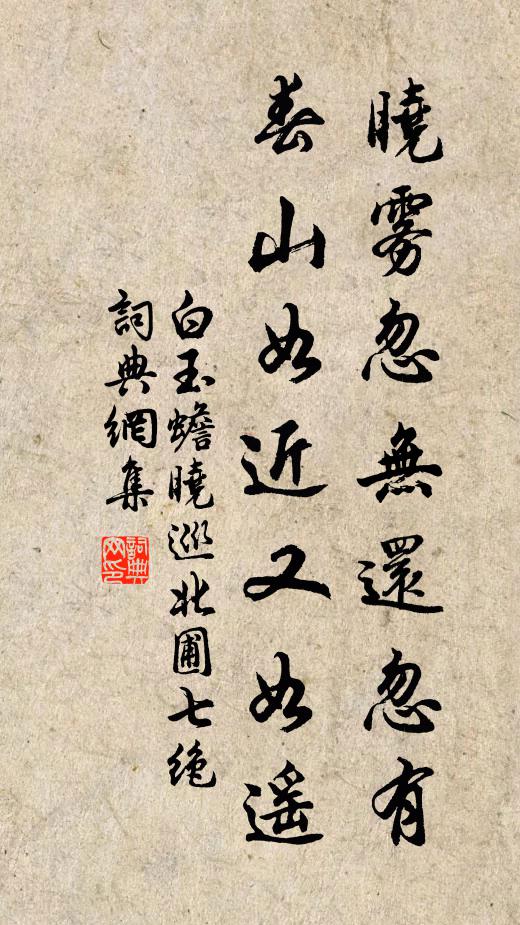 曉霧忽無還忽有
春山如近又如遥
白玉蟾曉巡北圃七絶
詞典網集
詞典网印